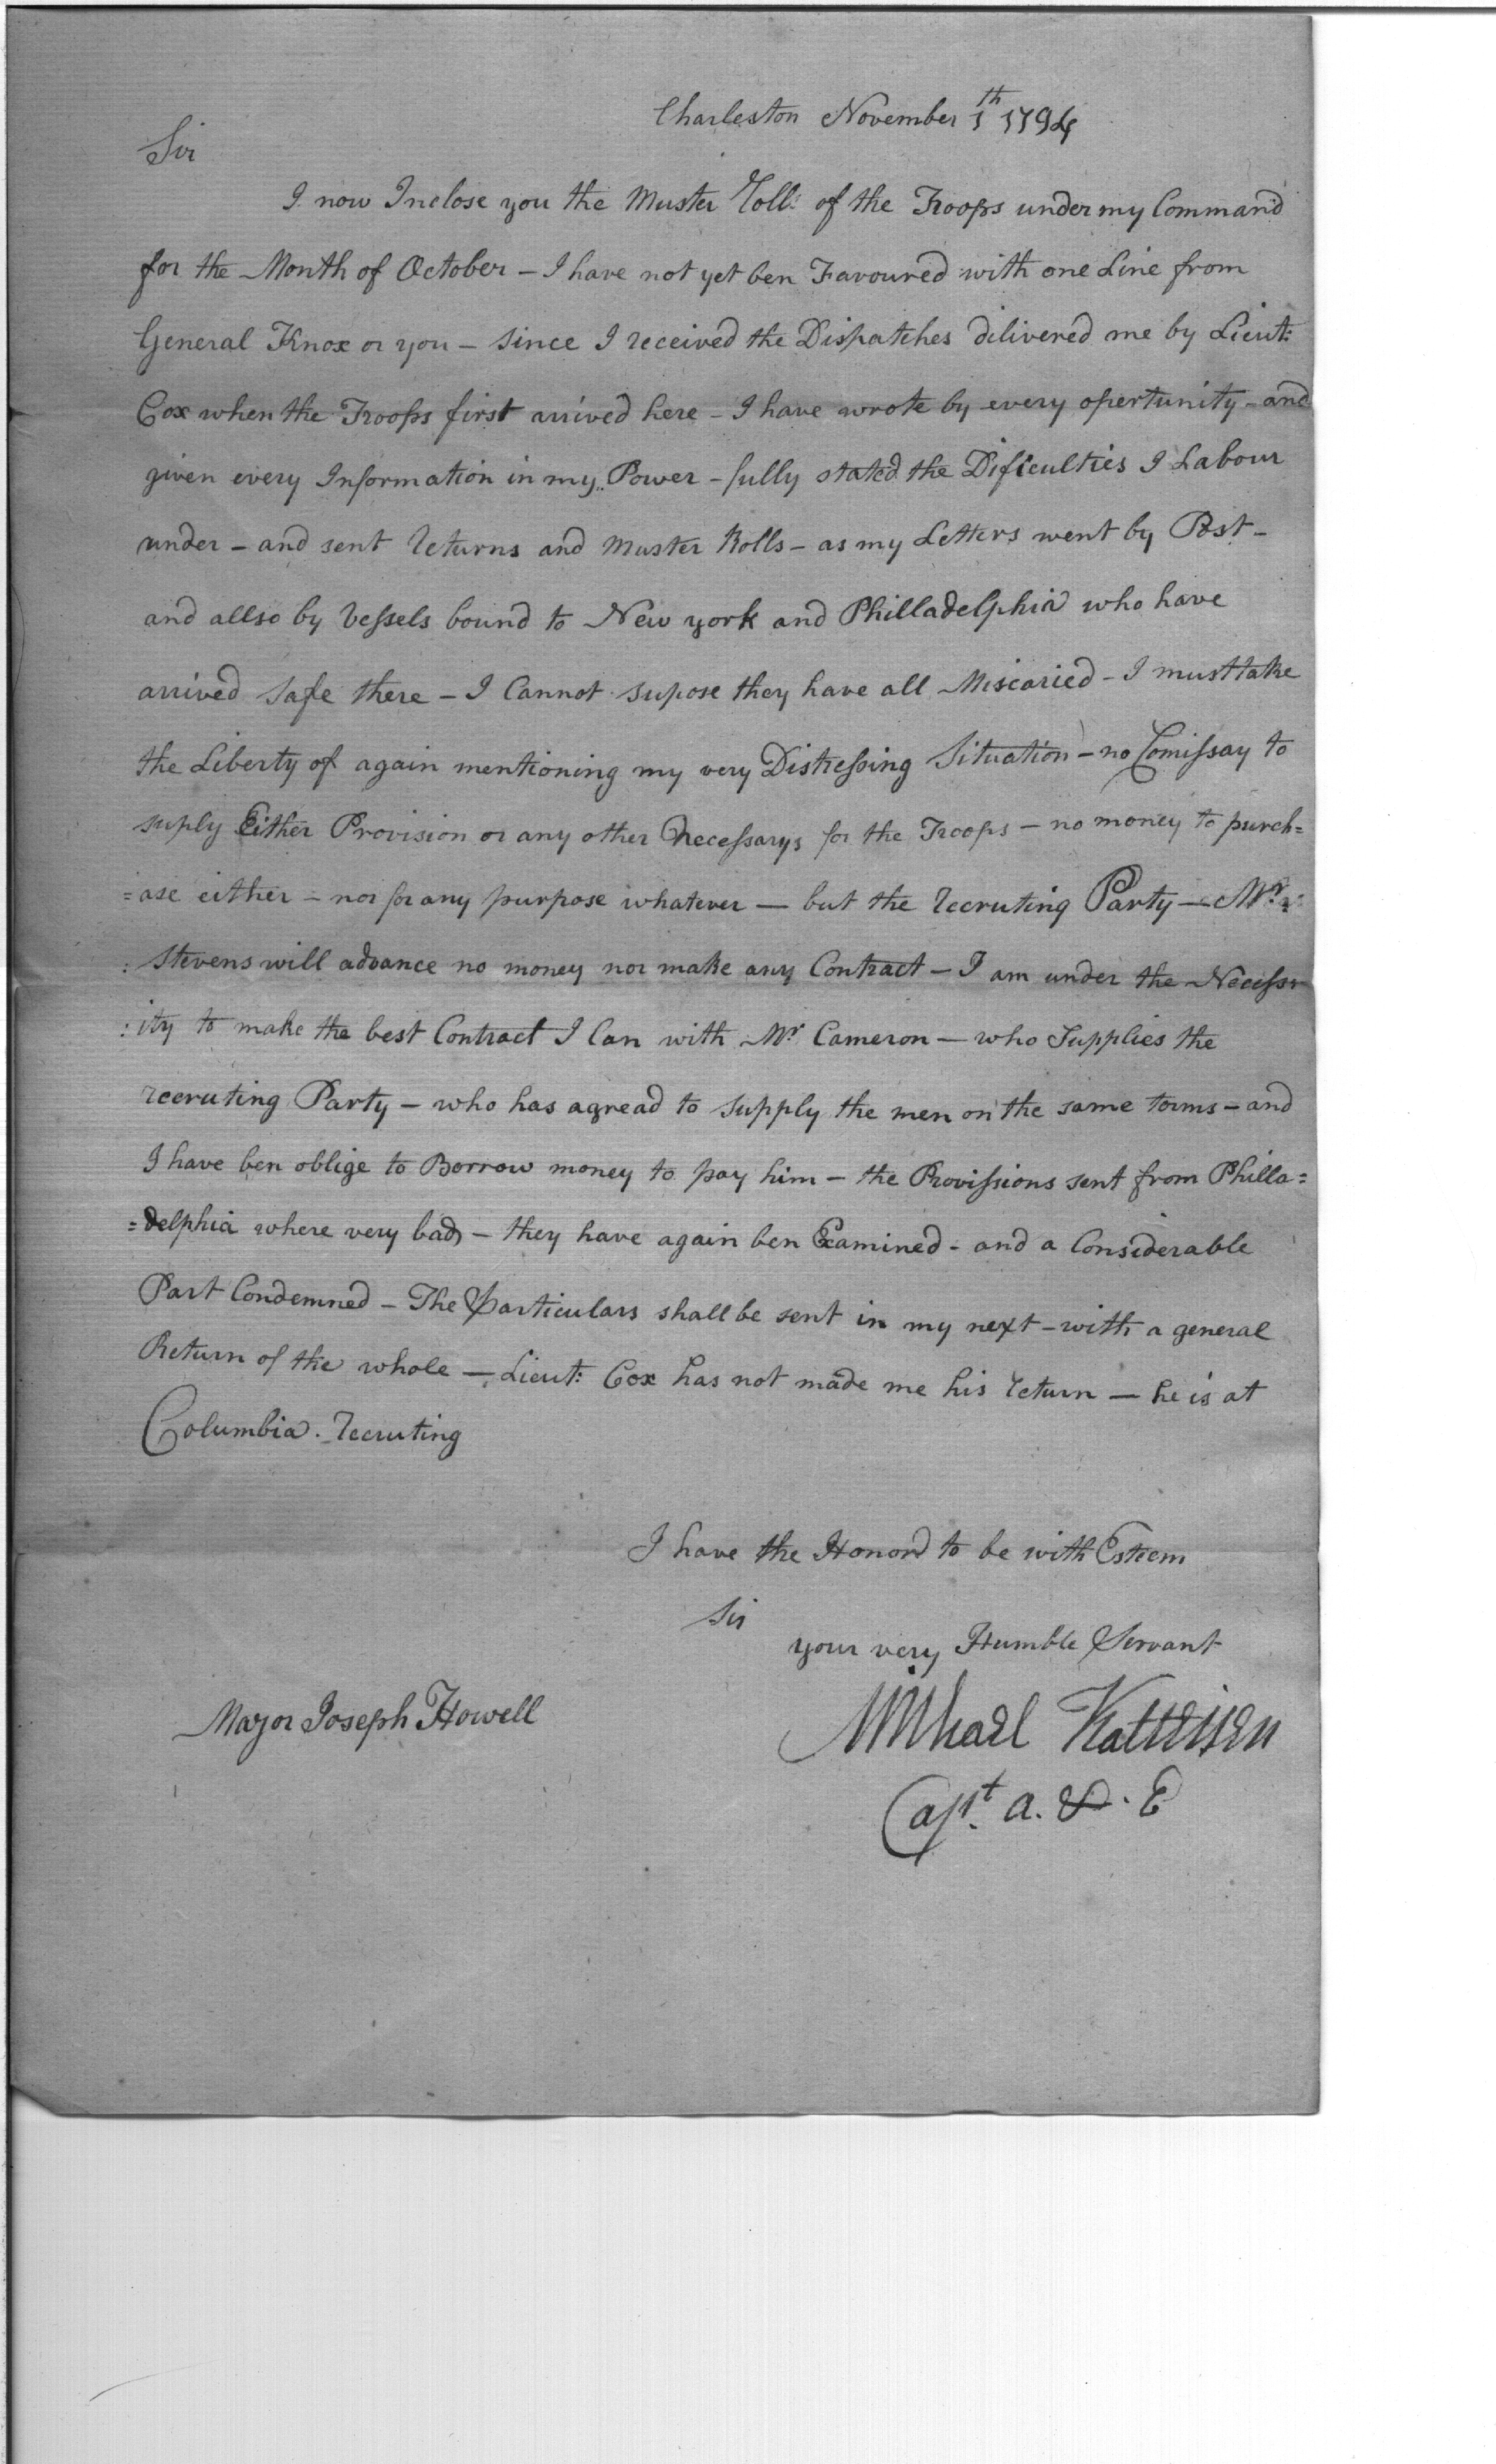 Charleston November 1th 1794
Sir
I now Inclose you the Muster Roll: of the Troops under my Command
for the Month of October – I have not yet ben Favoured with one Line from
General Knox or you – since I received the Dispatches dilivered me by Lieut:
Cox when the Troops first arrived here – I have wrote by every opertunity – and
given every Information in my Power – fully stated the Dificulties I Labour
under – and sent returns and Muster Rolls – as my Letters went by Post –
and allso by Vessels bound to New york and Philladelphia who have
arrived safe there – I Cannot supose they have all Miscaried – I must take
the Liberty of again mentioning my very Distressing Situation – no Comissay to
suply Either Provision or any other Necessarys for the Troops – no money to purch=
=ase either – nor for any purpose whatever — but the recruting Party — Mr.
: Stevens will advance no money nor make any Contract – I am under the Necess
: ity to make the best Contract I Can with Mr Cameron — who Supplies the
recruting Party – who has agread to supply the men on the same terms – and
I have ben oblige to Borrow money to pay him – the Provissions sent from Philla=
=delphia where very bad – they have again ben Examined – and a Considerable
Part Condemned – The Particulars shall be sent in my next – with a general
Return of the whole — Lieut: Cox has not made me his return — he is at
Columbia. recruting
I have the Honord to be with Esteem
Sir
your very Humble Servant
Major Joseph Howell
Michael Kalteisen
Capt. A. & E